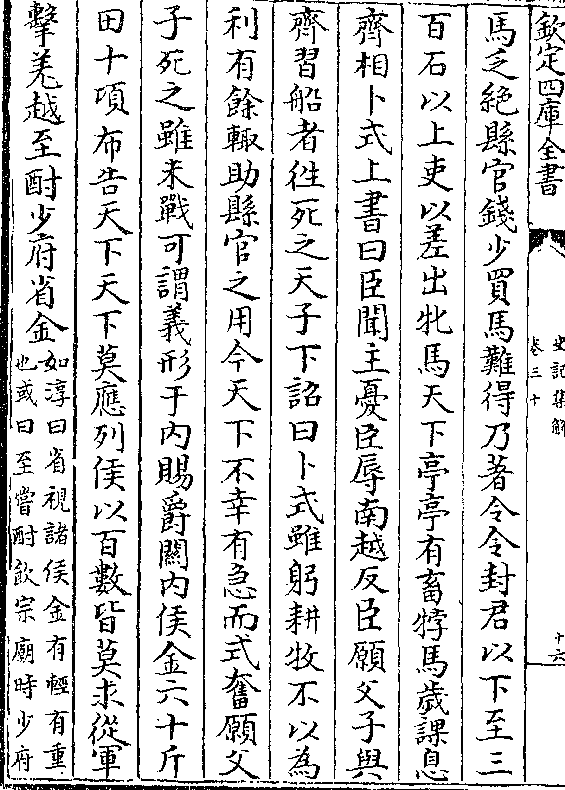 欽定四庫全書
史記集解
卷三十
十六
馬乏絶縣官錢少買馬難得乃著令令封君以下至三
百石以上吏以差出牝馬天下亭亭有畜牸馬歲課息
齊相卜式上書曰臣聞主憂臣辱南越反臣願父子與
齊習船者徃死之天子下詔曰卜式雖躬耕牧不以為
利有餘輙助縣官之用今天下不幸有急而式奮願父
子死之雖未戰可謂義形于内賜爵關内侯金六十斤
田十頃布告天下天下莫應列侯以百數皆莫求從軍
擊羌越至酎少府省金
如淳曰省視諸侯金有輕有重
也或曰至嘗酎飲宗廟時少府